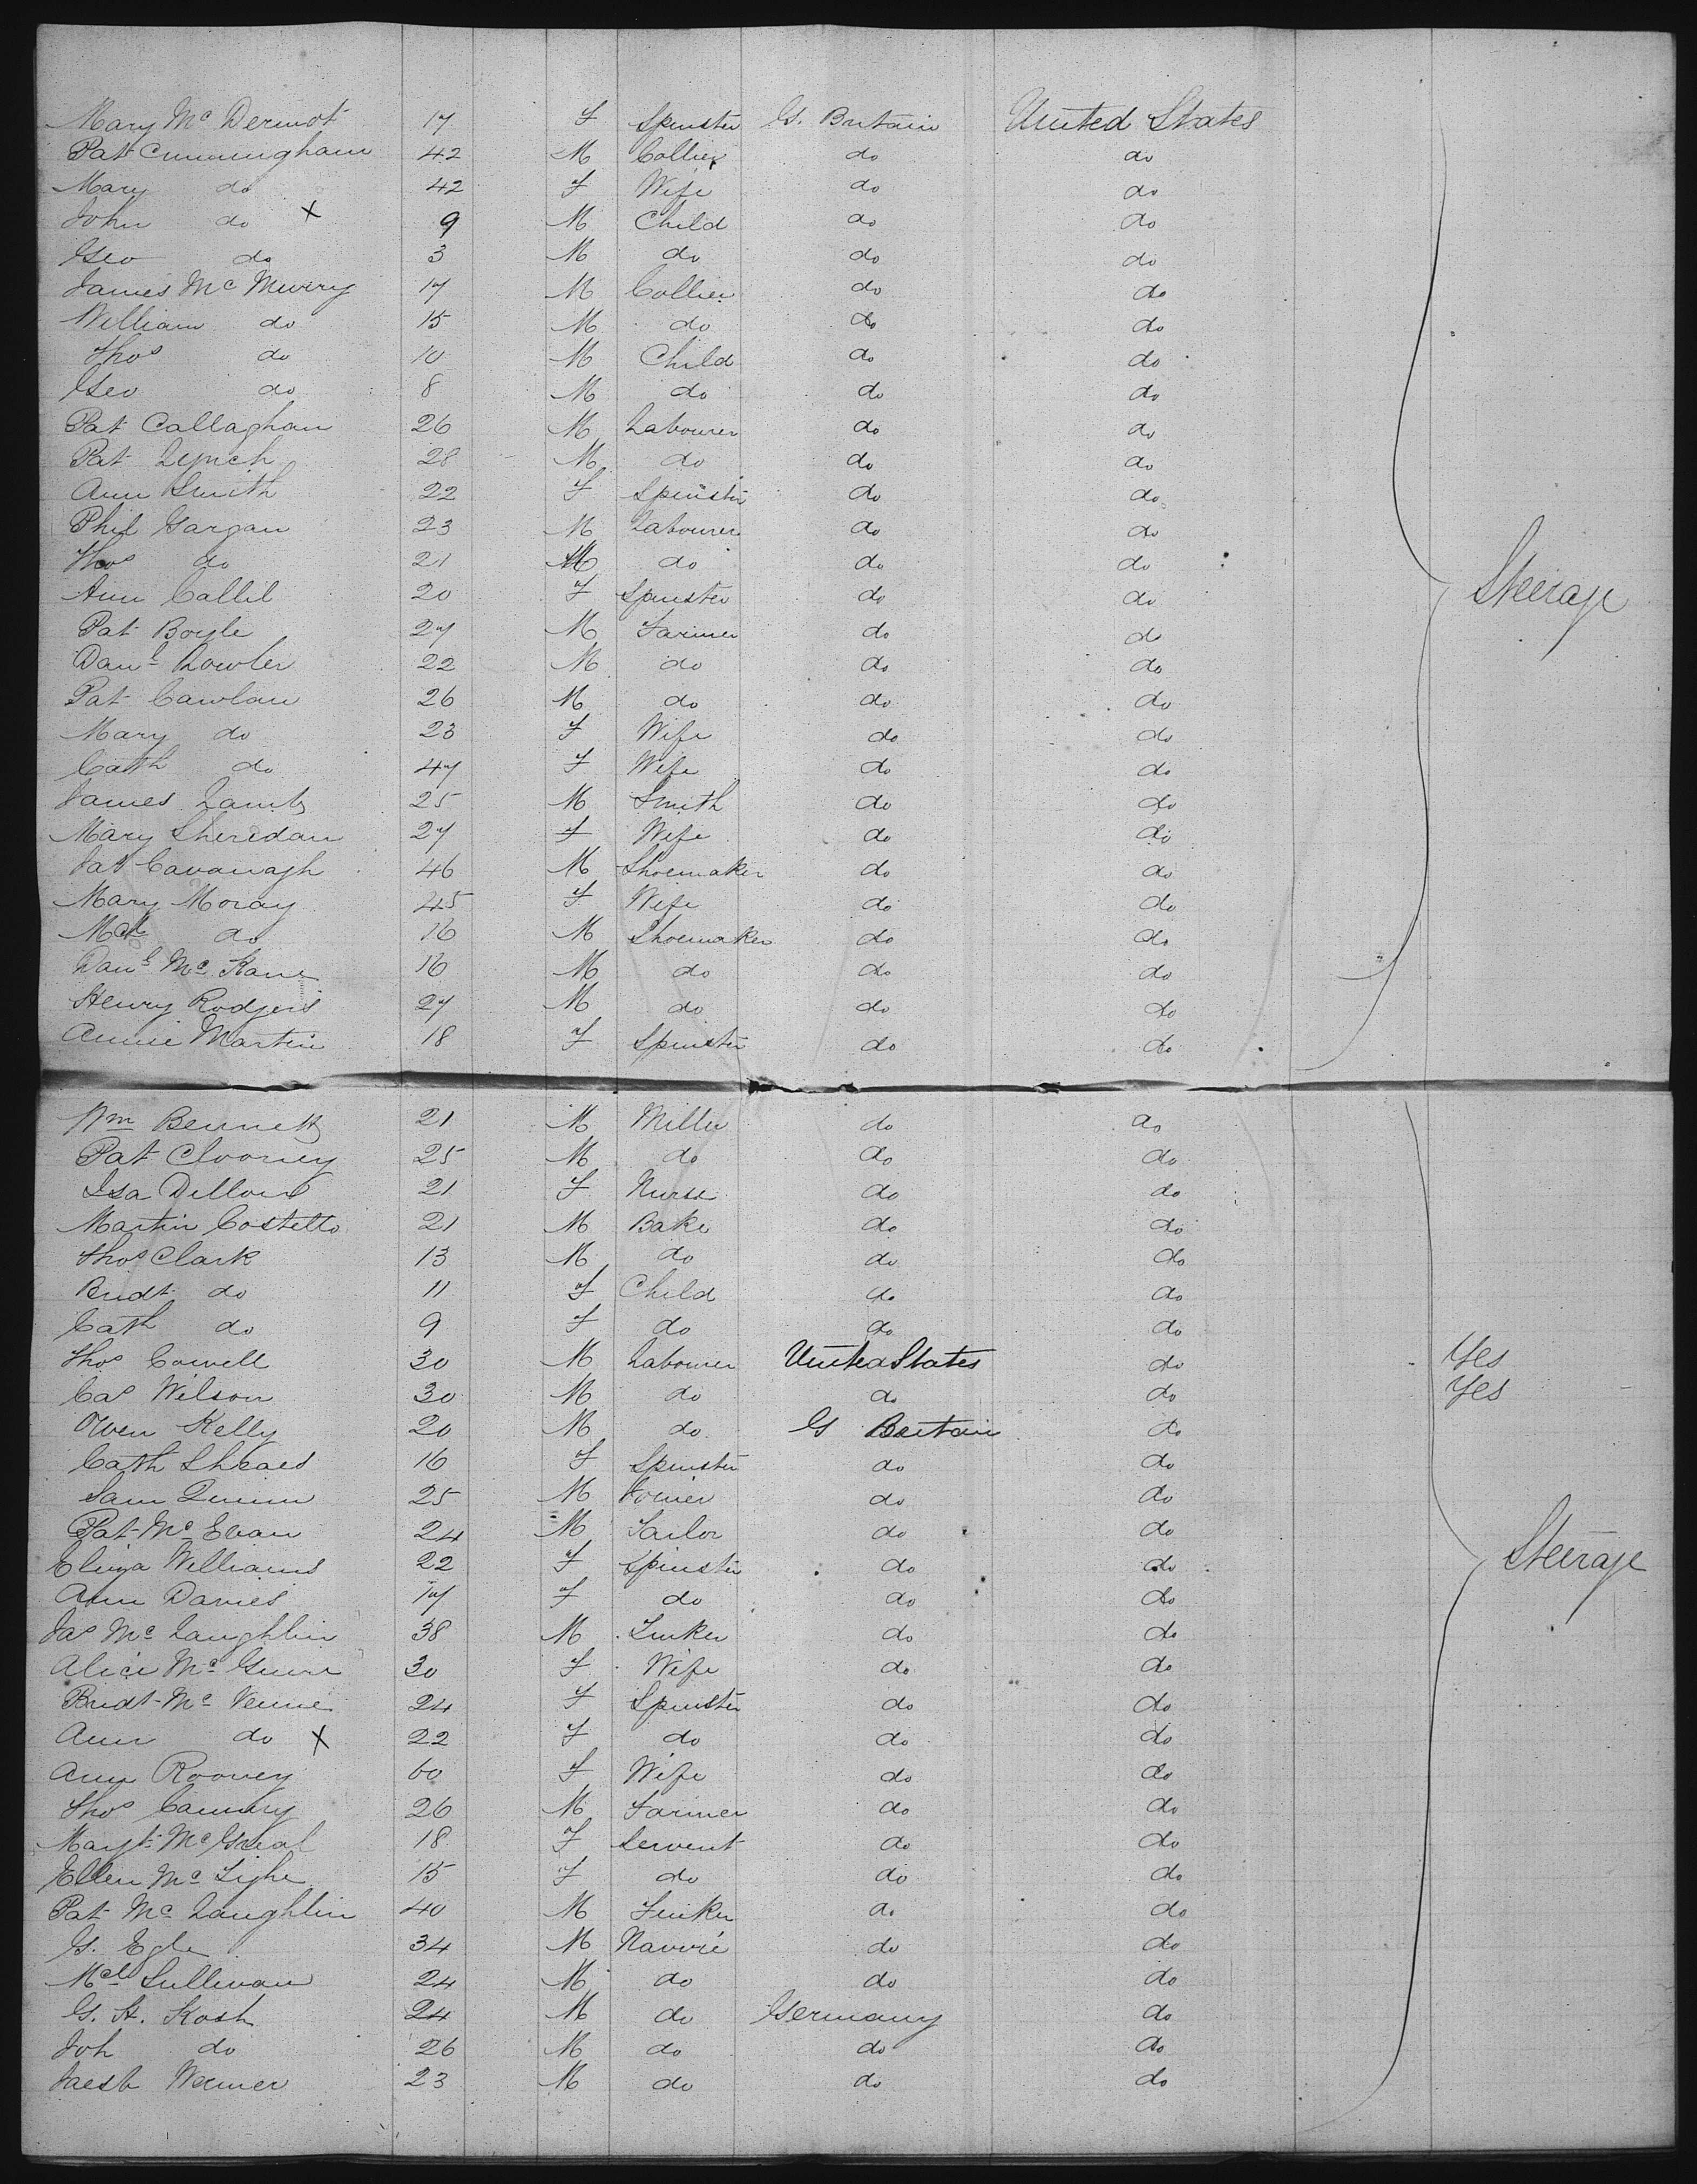 Mary Mc Dermot 17 F Spinster G. Britain United States
Pat Cunningham 42 M Collier do do
Mary do 42 F Wife do do
John do X 9 M Child do do
Geo do 3 M do do do
James Mc Murry 17 M Collier do do
William do 15 M do do do
Thos do 10 M Child do do
Geo do 8 M do do do
Pat Callaghan 26 M Labourer do do
Pat Lynch 28 M do do do
Ann Smith 22 F Spinster do do
Phil Gargan 23 M Labourer do do
Thos do 21 M do do do
Ann Callil 20 F Spinster do do Steerage
Pat Boyle 27 M Farmer do do
Danl Lowler 22 M do do do
Pat Cawlan 26 M do do do
Mary do 23 F Wife do do
Cath do 47 F Wife do do
James Lamb 25 M Smith do do
Mary Sheridan 27 F Wife do do
Pat Cavanagh 46 M Shoemaker do do
Mary Moray 45 F Wife do do
do 16 M Shoemaker do do
Danl Mc Kane 16 M do do do
Henry Rodgers 27 M do do do
Annie Martin 18 F Spinster do do
Wm Bennett 21 M Miller do do
Pat Clooney 25 M do do do
Isa Dillon 21 F Nurse do do
Martin Costello 21 M Bake do do
Thos Clark 13 M do do do
Bridt do 11 F Child do do
Cath do 9 F do do do
Thos Cowell 30 M Labourer United States do Yes
Cas Wilson 30 M do do do Yes
Owen Kelly 20 M do G Britain do
Cath 16 F Spinster do do
Sam Quinn 25 M Joiner do do
Pat Mc Evan 24 M Tailor do do
Eliza Williams 22 F Spinster do do Steerage
Ann Davies 17 F do do do
Jas Mc Laughlin 38 M do do
Alice Mc 30 F Wife do do
Bridt Mc Venne 24 F Spinster do do
Ann do X 22 F do do do
Ann Rooney 60 F Wife do do
Thos 26 M Farmer do do
Margt Mc Greal 18 F Servent do do
Ellen Mc Tighe 15 F do do do
Pat Mc Laughlin 40 M do do
G. Egle 34 M Navvie do do
Mcl Sullivan 24 M do do do
G. H. Kosh 24 M do Germany do
Joh do 26 M do do do
Werner 23 M do do do